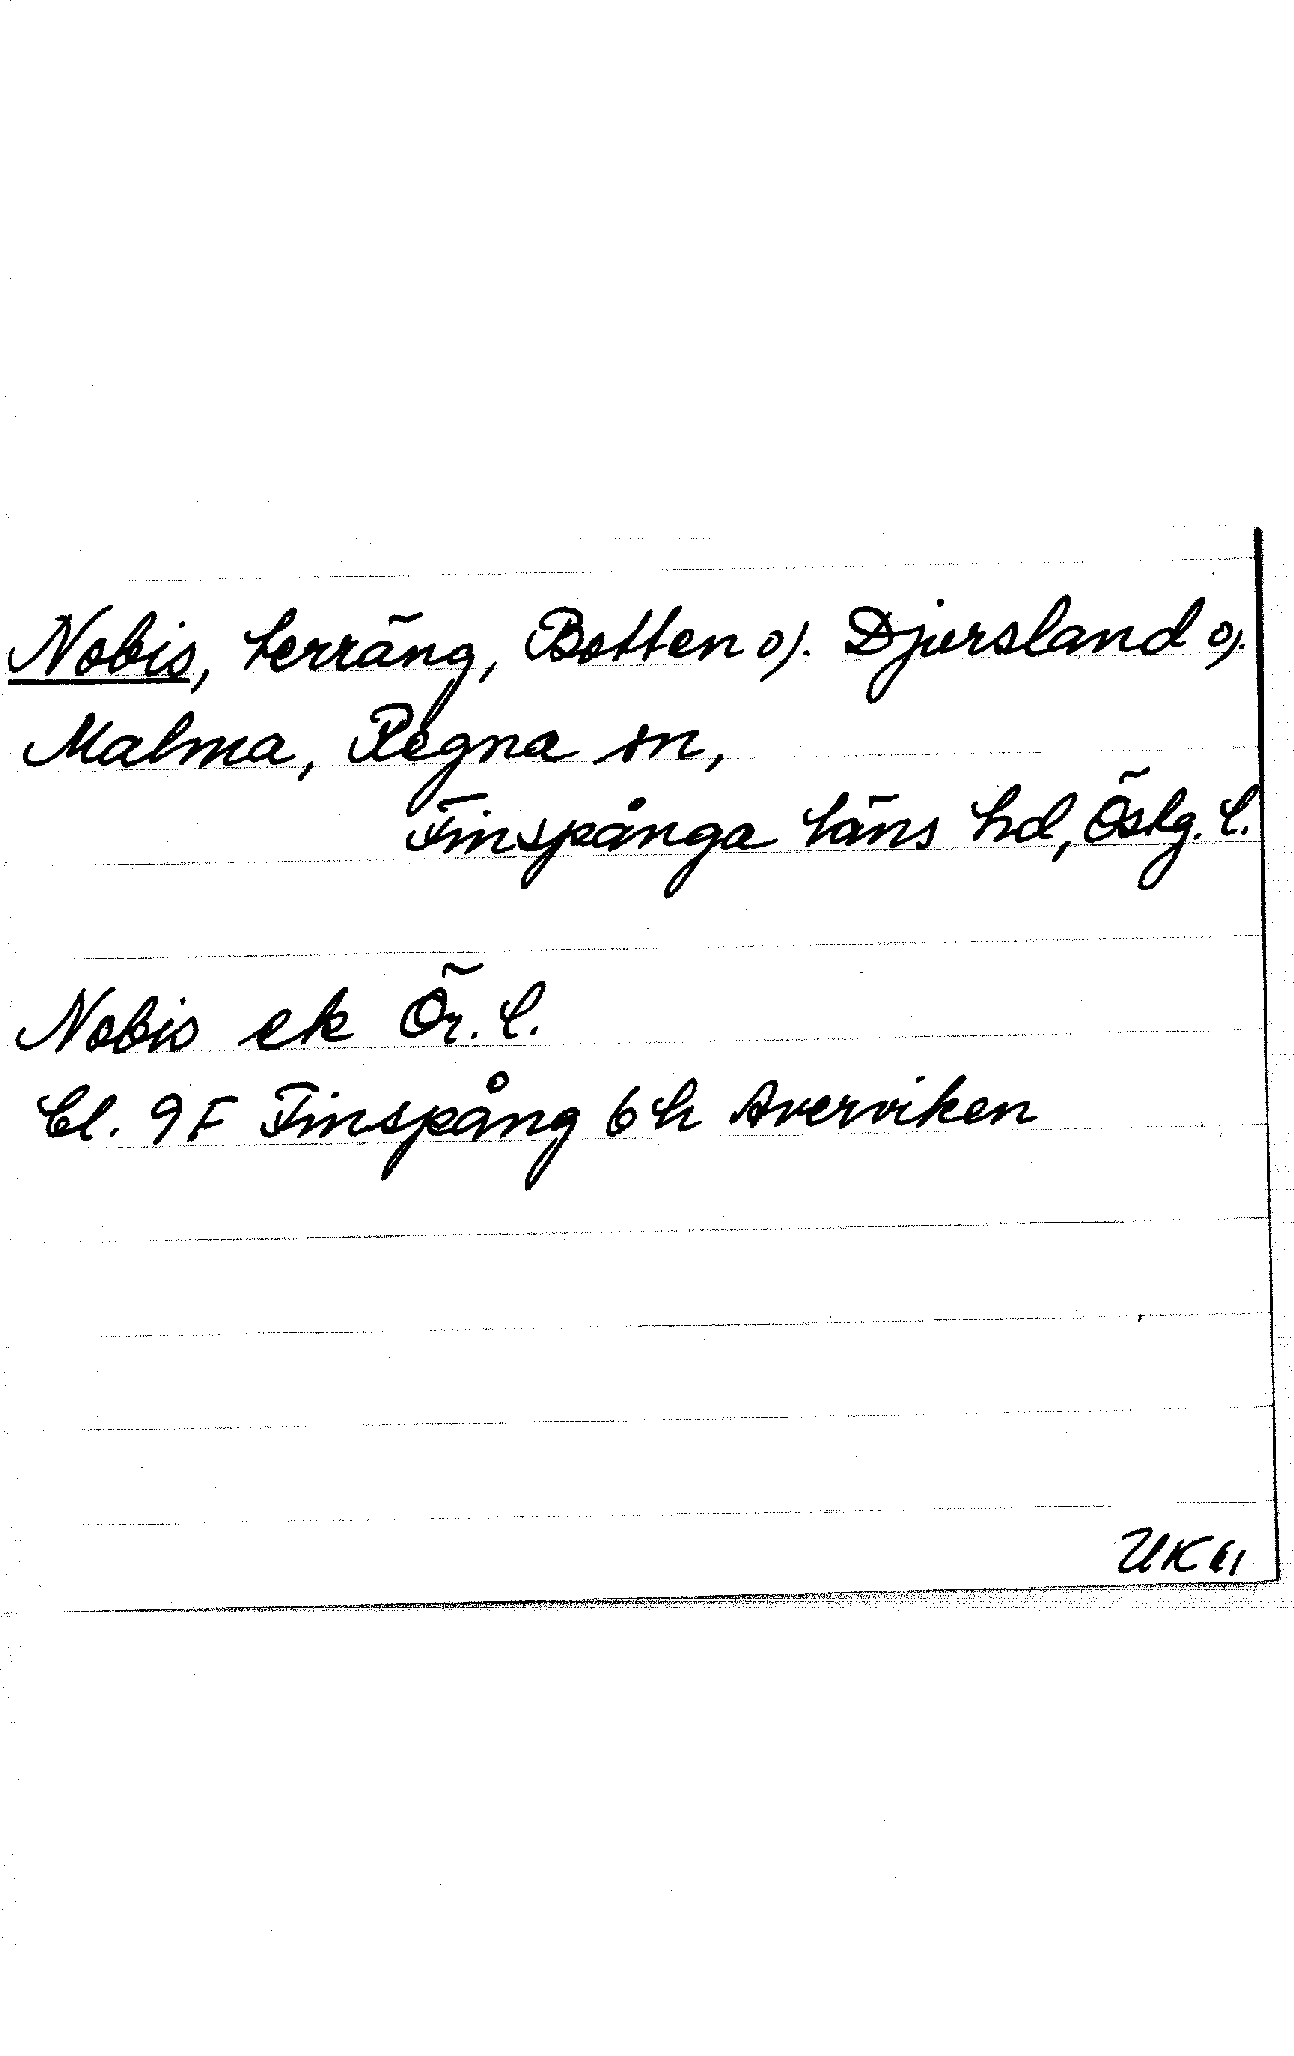 Nobis, terräng, Botten o). Djursland o).
Malma, Regna sn,
Finspånga läns hd, Östg. l.
Nobis ek Ör. l.
bl. 9F Finspång 6h Averviken